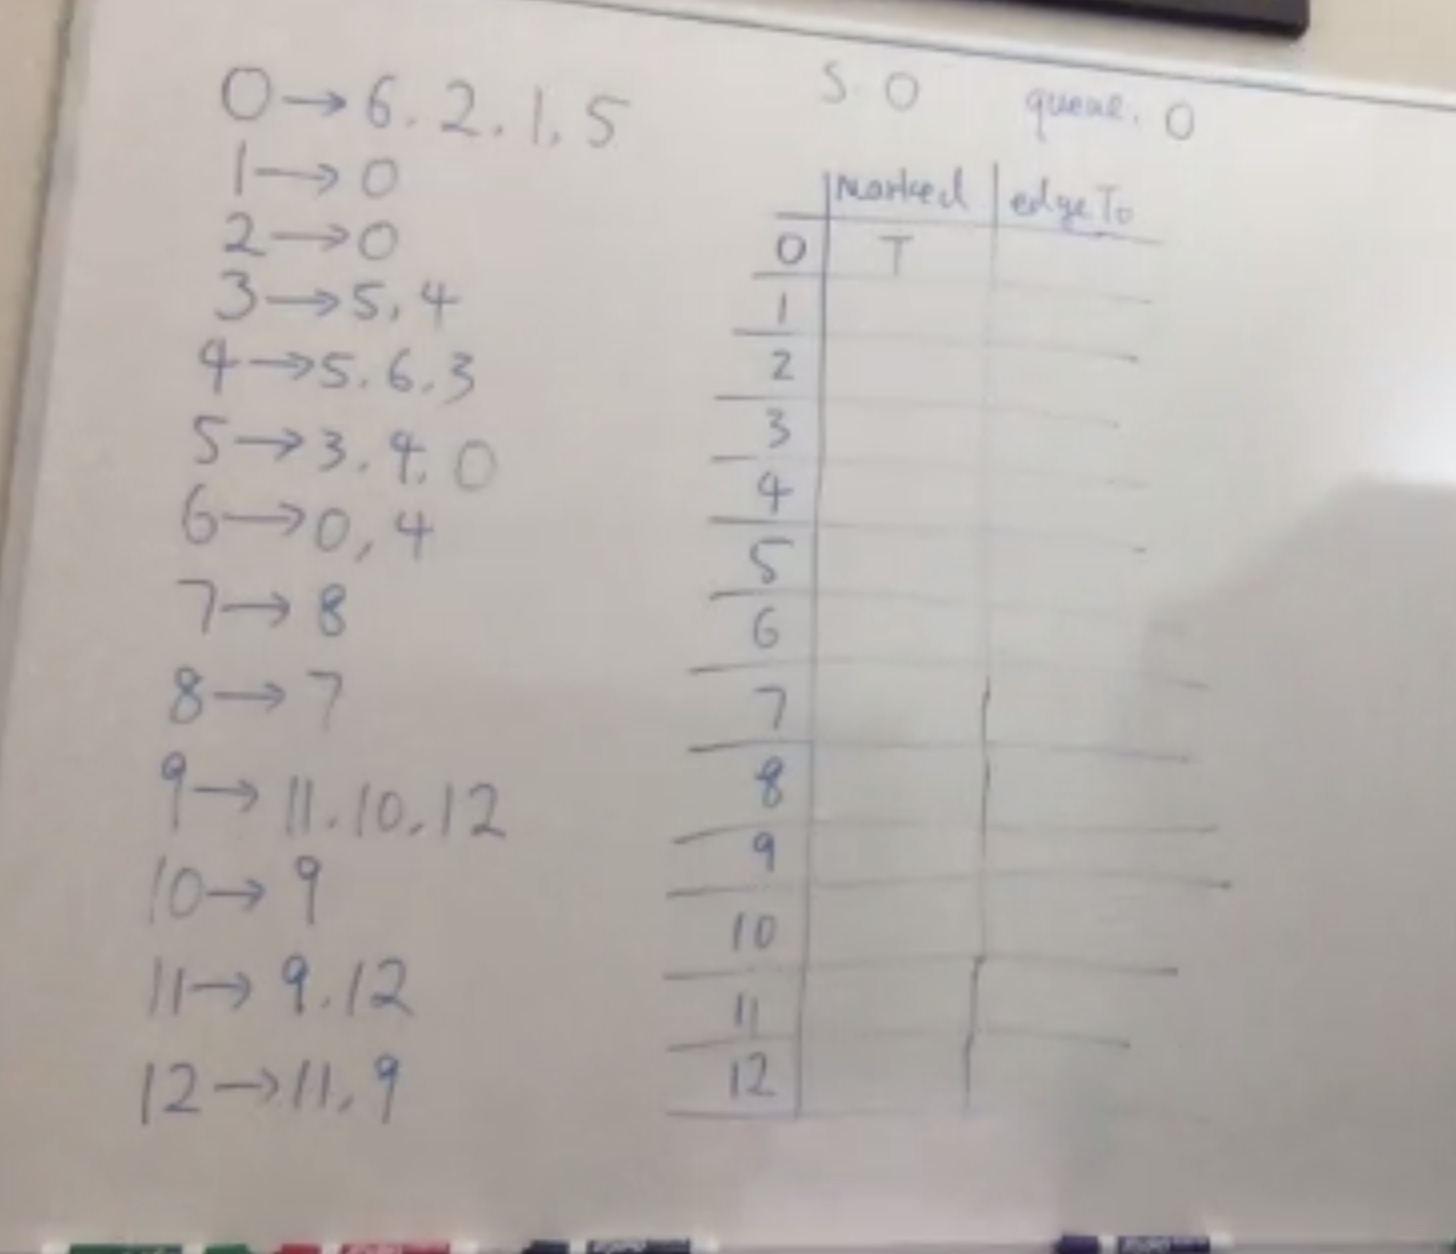 0→6.2.1.5
1→0
2→0
3→5,4
4→5.6.3
5→3.4.0
6→0,4
7→8
8→7
9→11.10.12
10→9
11→9.12
12→11,9
S. 0 queue. 0
marked edgeTo
0 T
1
2
3
4
5
6
7
8
9
10
11
12